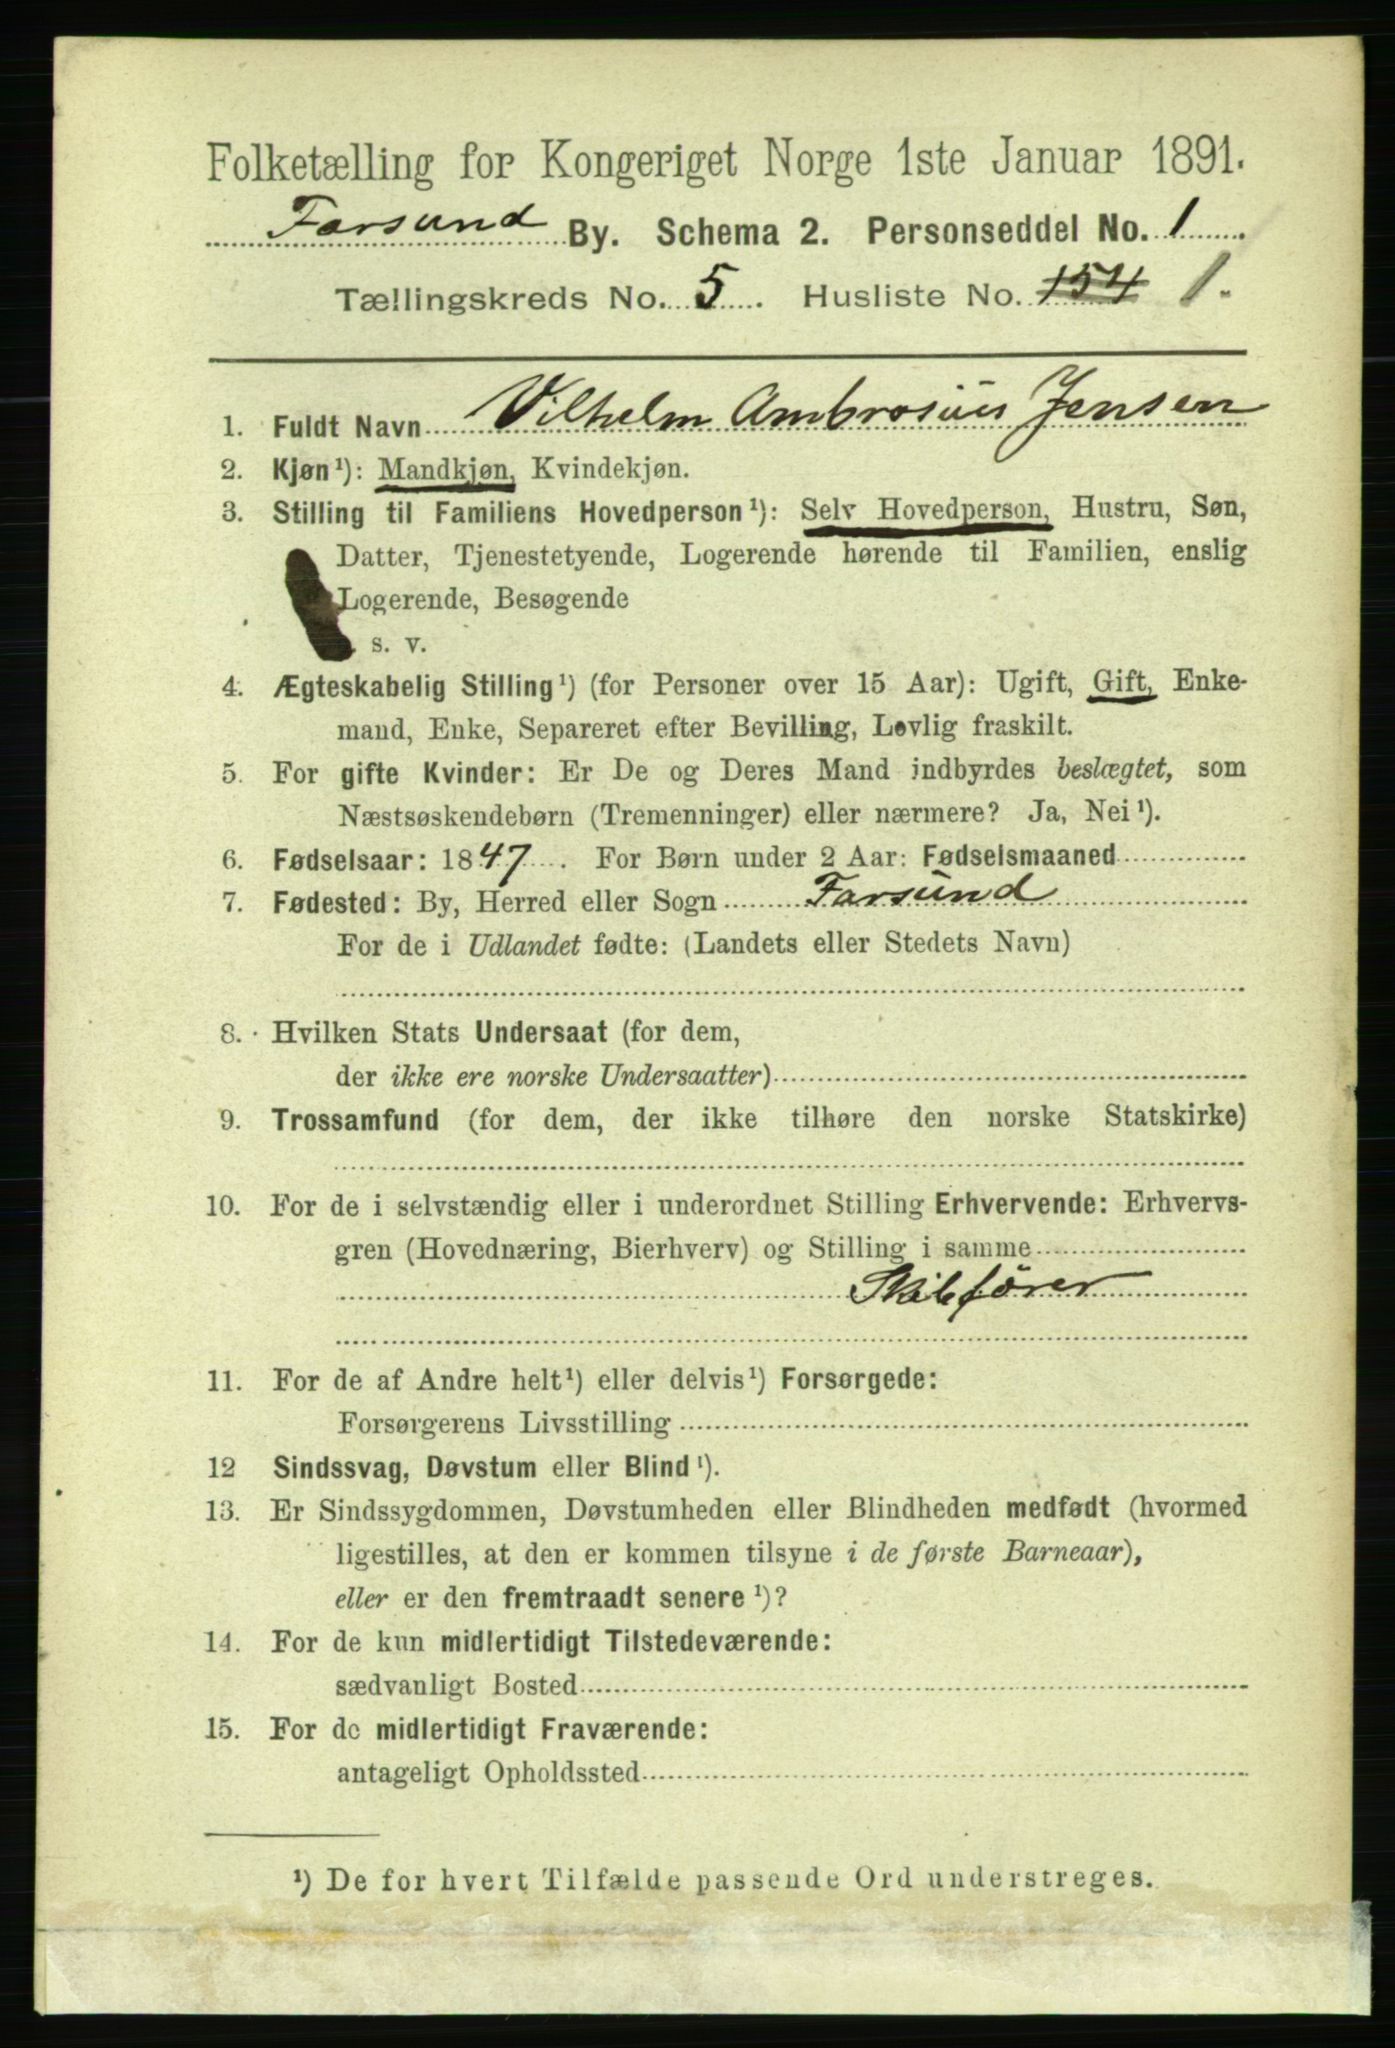 Folketælling for Kongeriget Norge 1ste Januar 1891.
Farsund By. Schema 2. Personseddel No. 1
Tællingskreds No. 5. Husliste No. 154 1.
1. Fuldt Navn Vilhelm Ambrosius Jensen
2. Kjøn¹): Mandkjøn, Kvindekjøn.
3. Stilling til Familiens Hovedperson¹): Selv Hovedperson, Hustru, Søn,
Datter, Tjenestetyende, Logerende hørende til Familien, enslig
Logerende, Besøgende
s. v.
4. Ægteskabelig Stilling¹) (for Personer over 15 Aar): Ugift, Gift, Enke-
mand, Enke, Separeret efter Bevilling, Lovlig fraskilt.
5. For gifte Kvinder: Er De og Deres Mand indbyrdes beslægtet, som
Næstsøskendebørn (Tremenninger) eller nærmere? Ja, Nei¹).
6. Fødselsaar: 1847. For Børn under 2 Aar: Fødselsmaaned
7. Fødested: By, Herred eller Sogn Farsund
For de i Udlandet fødte: (Landets eller Stedets Navn)
8. Hvilken Stats Undersaat (for dem,
der ikke ere norske Undersaatter)
9. Trossamfund (for dem, der ikke tilhøre den norske Statskirke)
10. For de i selvstændig eller i underordnet Stilling Erhvervende: Erhvervs-
gren (Hovednæring, Bierhverv) og Stilling i samme
Skibsfører
11. For de af Andre helt¹) eller delvis¹) Forsørgede:
Forsørgerens Livsstilling
12 Sindssvag, Døvstum eller Blind¹).
13. Er Sindssygdommen, Døvstumheden eller Blindheden medfødt (hvormed
ligestilles, at den er kommen tilsyne i de første Barneaar),
eller er den fremtraadt senere¹)?
14. For de kun midlertidigt Tilstedeværende:
sædvanligt Bosted
15. For de midlertidigt Fraværende:
antageligt Opholdssted
¹) De for hvert Tilfælde passende Ord understreges.